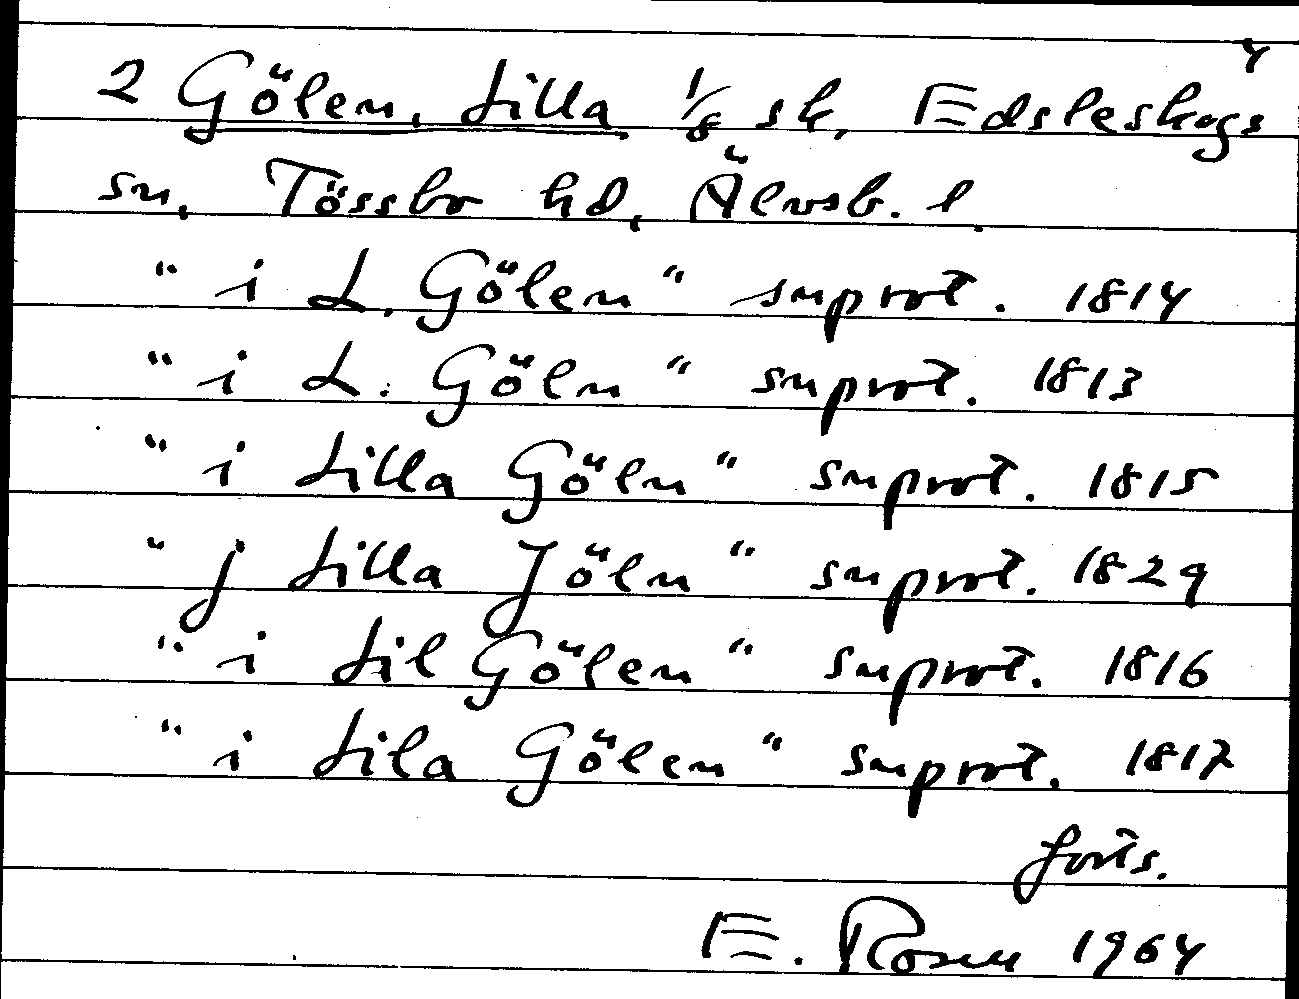 4
2 Gölen, Lilla 1/8 sk, Edsleskogs
sn, Tössbo hd, Älvsb. l.
"i L. Gölen" snprot. 1814
"i L. Göln" snprot. 1813
"i Lilla Göln" snprot. 1815
"j Lilla Jöln" snprot. 1829
"i Lil Gölen" snprot. 1816
"i Lila Gölen" snprot. 1817
forts.
E. Rosen 1964